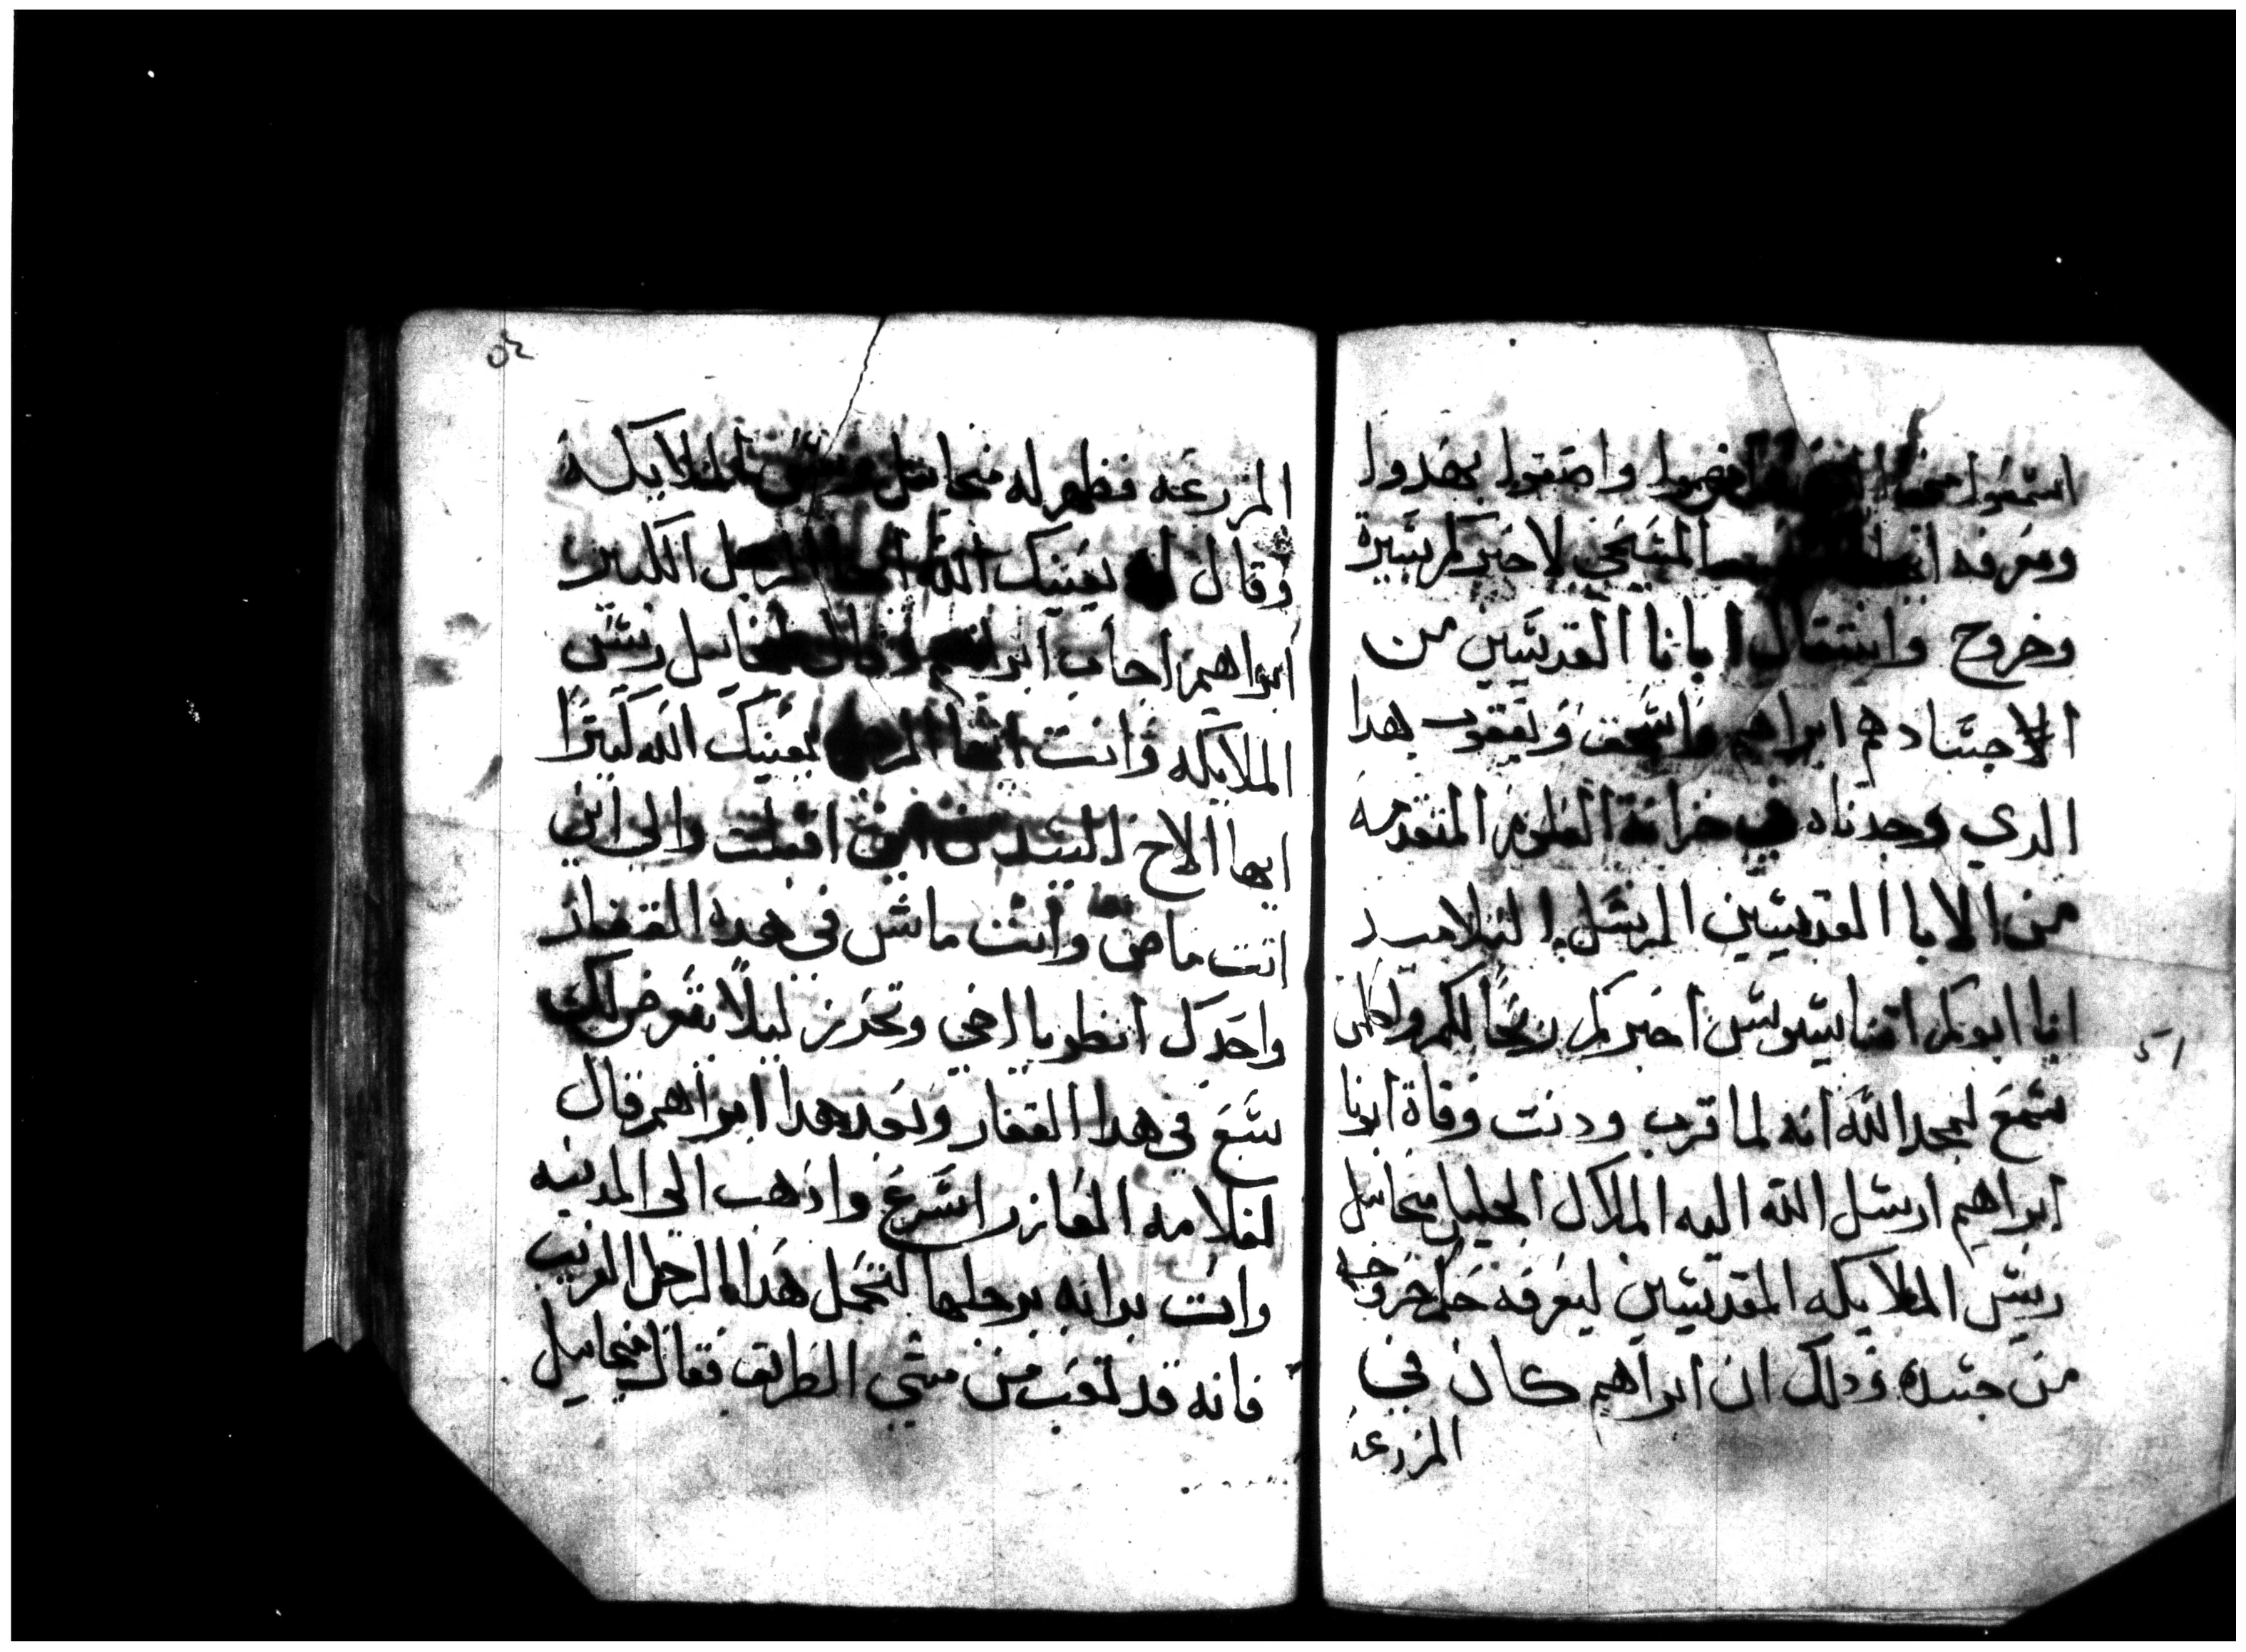 اسمعوا وافهموا واصغوا بهدوا
ومعرفه المسحى لاخبركم بسيرة
وخروج وانتقال ابانا القديسين من
الاجساد هم ابراهيم واسحق ويعقوب هدا
الدي وجدناه في خزانة العلوم المتقدمه
من الابا القديسين الرسل التلاميد
انا ابوكم اخبركم ربحا لكم ولكلمن
سمع لمجد الله انه لما قرب ودنت وفاة ابونا
ابراهيم ارسل الله اليه الملاك الجليل ميخاييل
ريس الملايكه المقدسين ليعرفه خبر خروجه
من جسده ودلك ان ابراهيم كان في
المزرعه
٥٢
المزرعه فظهر له ميخاييل ريس الملايكه
وقال له يعينك الله ايها الرجل الكبير
ابراهيم اجاب ابراهيم وقال لميخاييل ريس
الملايكه وانت ايها الرجل يعينك الله كثيرا
ايها الاخ من اين اقبلت والى اين
انت ماضى وانت ماشى فى هده القفار
واحدك انظر يا اخي وتحرز ليلا يعرض لك
سبع في هدا القفار وبعد هدا ابراهيم قال
لغلامه العازر اسرع واذهب الى المدينه
وات بدابه برحلها لتحمل هدا الرجل الغريب
فانه قد تعب من مشي الطريق فقال ميخاييل